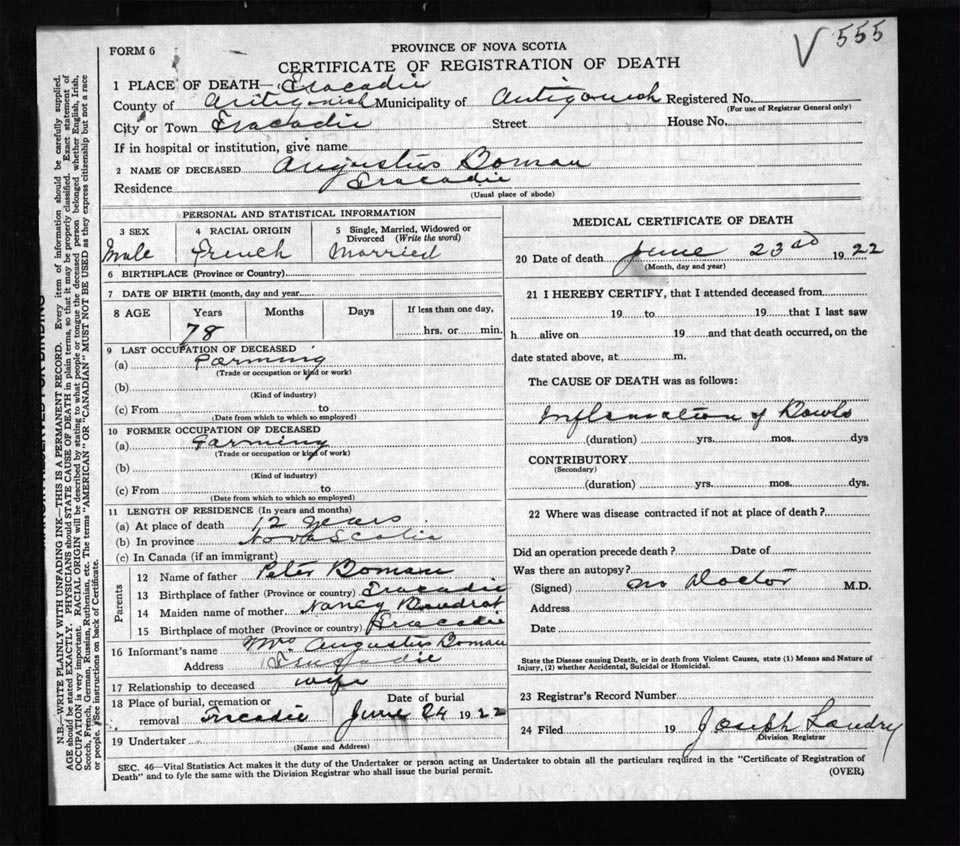 V 555
FORM 6
PROVINCE OF NOVA SCOTIA
CERTIFICATE OF REGISTRATION OF DEATH
1 PLACE OF DEATH— Tracadie
County of Antigonish Municipality of Antigonish Registered No.
(For use of Registrar General only)
City or Town Tracadie Street House No.
If in hospital or institution, give name
2 NAME OF DECEASED Augustus Boman
Residence Tracadie
(Usual place of abode)
PERSONAL AND STATISTICAL INFORMATION
3 SEX 4 RACIAL ORIGIN 5 Single, Married, Widowed or Divorced (Write the word)
Male French Married
6 BIRTHPLACE (Province or Country)
7 DATE OF BIRTH (month, day and year)
8 AGE Years Months Days If less than one day,
78 hrs. or min.
9 LAST OCCUPATION OF DECEASED
(a) Farming
(Trade or occupation or kind or work)
(b)
(Kind of industry)
(c) From to
(Date from which to which so employed)
10 FORMER OCCUPATION OF DECEASED
(a) Farming
(Trade or occupation or kind of work)
(b)
(Kind of industry)
(c) From to
(Date from which to which so employed)
11 LENGTH OF RESIDENCE (In years and months)
(a) At place of death 12 years
(b) In province Nova Scotia
(c) In Canada (if an immigrant)
Parents
12 Name of father Peter Boman
13 Birthplace of father (Province or country) Tracadie
14 Maiden name of mother Nancy Boudrot
15 Birthplace of mother (Province or country) Tracadie
16 Informant's name Mrs Augustus Boman
Address Tracadie
17 Relationship to deceased wife
18 Place of burial, cremation or removal Tracadie
Date of burial June 24 1922
19 Undertaker
(Name and Address)
MEDICAL CERTIFICATE OF DEATH
20 Date of death June 23rd 1922
(Month, day and year)
21 I HEREBY CERTIFY, that I attended deceased from
19 to 19 that I last saw
h alive on 19 and that death occurred, on the
date stated above, at m.
The CAUSE OF DEATH was as follows:
Inflamation of Bowls
(duration) yrs. mos. dys
CONTRIBUTORY
(Secondary)
(duration) yrs. mos. dys.
22 Where was disease contracted if not at place of death?
Did an operation precede death? Date of
Was there an autopsy?
(Signed) no Doctor M.D.
Address
Date
State the Disease causing Death, or in death from Violent Causes, state (1) Means and Nature of
Injury, (2) whether Accidental, Suicidal or Homicidal.
23 Registrar's Record Number
24 Filed 19 Joseph Landry
Division Registrar
SEC. 46—Vital Statistics Act makes it the duty of the Undertaker or person acting as Undertaker to obtain all the particulars required in the "Certificate of Registration of
Death" and to fyle the same with the Division Registrar who shall issue the burial permit.
(OVER)
N.B.—WRITE PLAINLY WITH UNFADING INK—THIS IS A PERMANENT RECORD. Every item of information should be carefully supplied.
AGE should be stated EXACTLY. PHYSICIANS should STATE CAUSE OF DEATH in plain terms, so that it may be properly classified. Exact statement of
OCCUPATION is very important. RACIAL ORIGIN will be described by stating to what people or tongue the deceased person belonged, whether English, Irish,
Scotch, French, German, Russian, Ruthenian, etc. The terms "AMERICAN" OR "CANADIAN" MUST NOT BE USED as they express citizenship but not a race
or people. See instructions on back of Certificate.